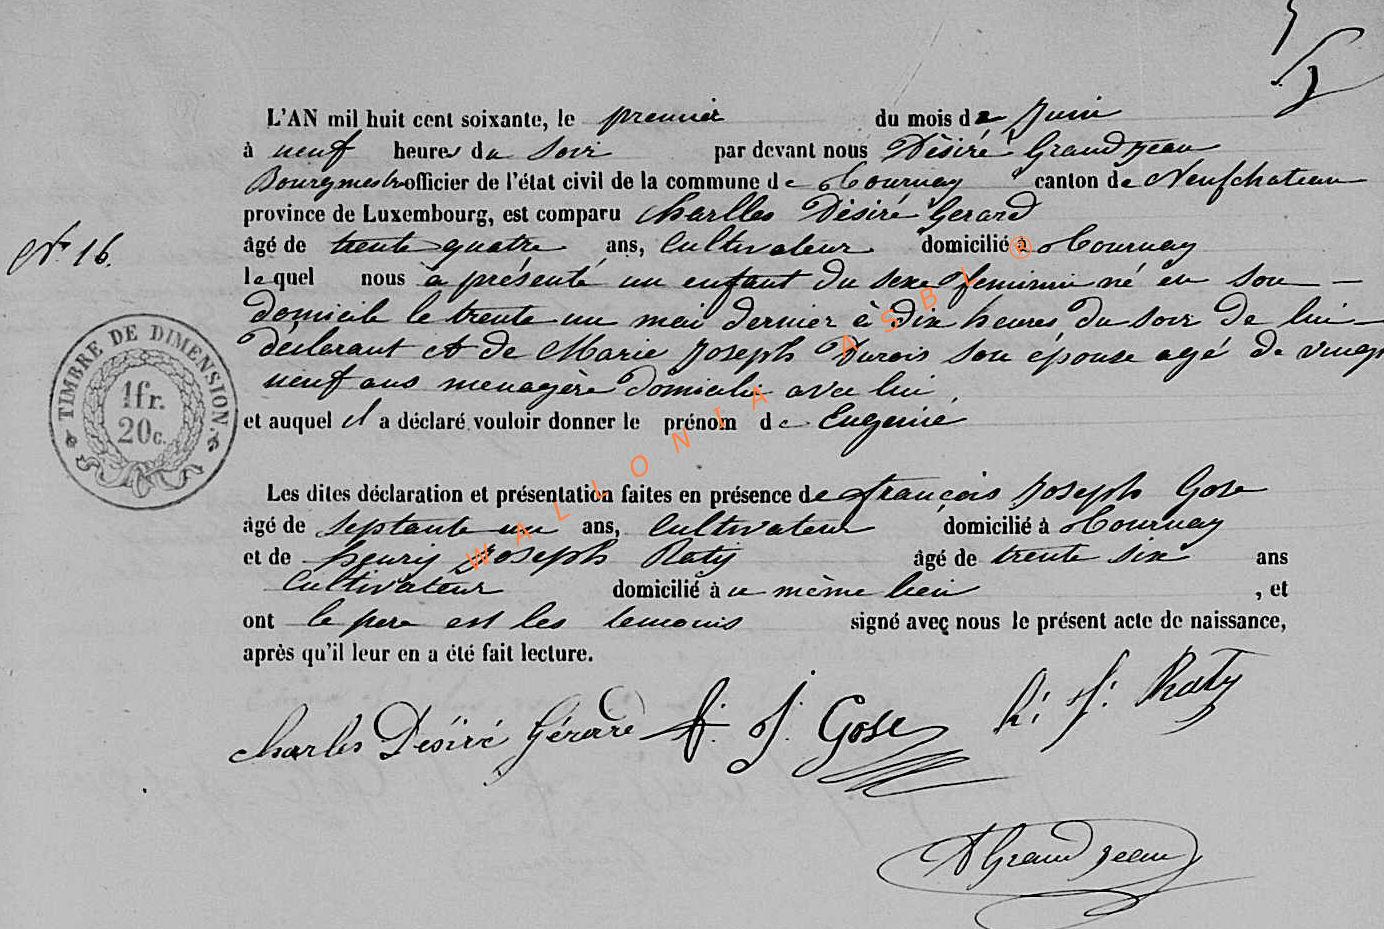 L'AN mil huit cent soixante, le premier du mois de Juin
à neuf heures du Soir par devant nous Désiré Grandjean
Bourgmestre officier de l'état civil de la commune de Tournay canton de Neufchateau
province de Luxembourg, est comparu Charlles Désiré Gerard
N° 16.
âgé de trente quatre ans, Cultivateur domicilié à Tournay
lequel nous a présenté un enfant du sexe feminin né en son
domicile le trente un mai dernier à dix heures du soir de lui
déclarant et de Marie Joseph son épouse agé de vingt
neuf ans menagère domicilié avec lui
et auquel il a déclaré vouloir donner le prénom de Eugenié
TIMBRE DE DIMENSION
1fr.
20c.
Les dites déclaration et présentation faites en présence de françois Joseph Gose
âgé de septante un ans, Cultivateur domicilié à Tournay
et de henry Joseph Raty âgé de trente six ans
Cultivateur domicilié à ce même lieu , et
ont le pere est les temouis signé avec nous le présent acte de naissance,
après qu'il leur en a été fait lecture.
Charles Désiré Gérard f. J. Gose h. J. Raty
D Grandjean
WALLONIA ASBL ®